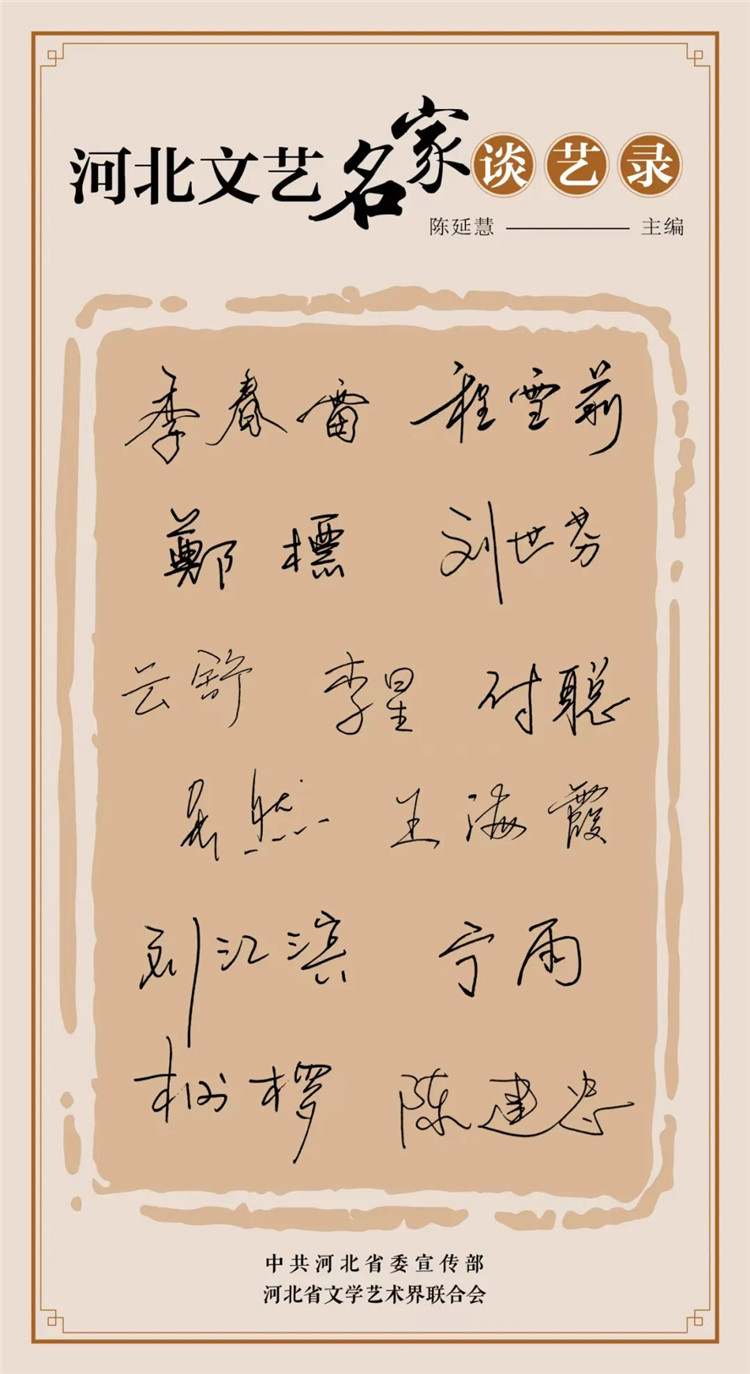 河北文艺名家谈艺录
陈延慧 主编
季春雷 程雪莉
鄭標 刘世芬
云舒 李星 付聪
然 王海霞
刘江滨 宁雨
桫椤 陈建忠
中共河北省委宣传部
河北省文学艺术界联合会